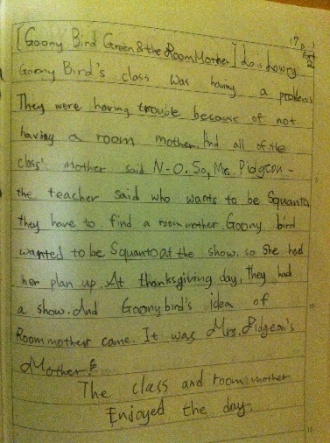 [Goony Bird Green & the Room Mother]
Goony Bird's class was having a problem
They were having trouble because of not
having a room mother. And all of the
class' mother said N-O. So, Ms. Pidgeon-
the teacher said who wants to be Squanto,
they have to find a room mother. Goony bird
wanted to be Squanto at the show. so she had
her plan up. At thanksgiving day, They had
a show. And Goony bird's idea of
Room mother came. It was Mrs. Pidgeon's
Mother!
The class and room mother
Enjoyed the day.